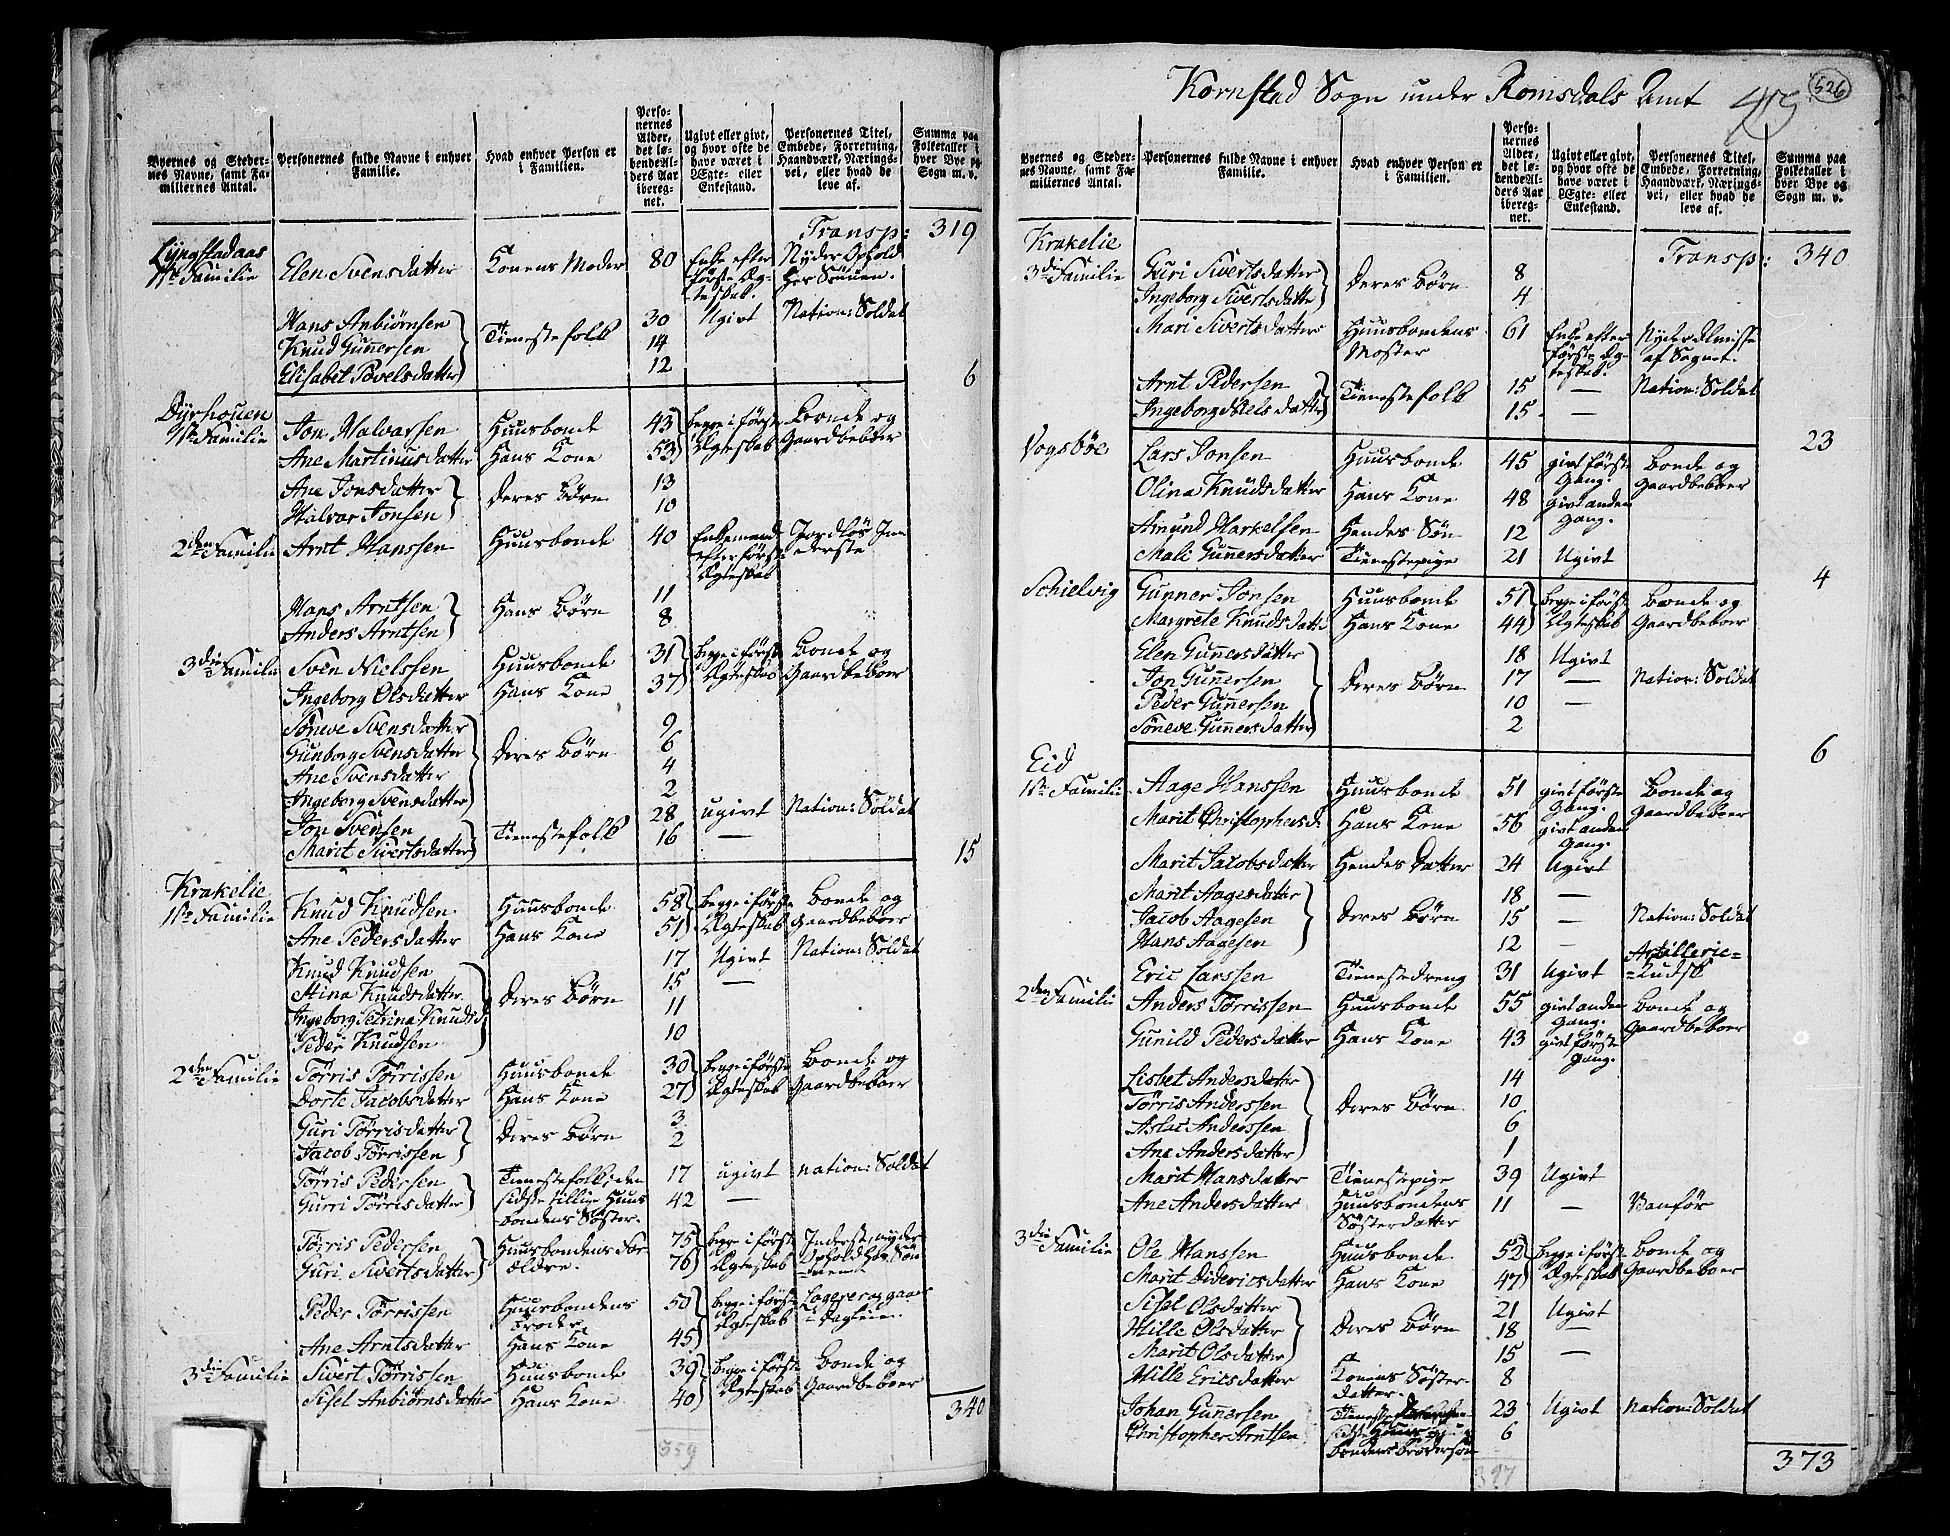 Byernes og Steder-
nes Navne, samt Fa-
miliernes Antal.
Personernes fulde Navne i enhver
Familie.
Hvad enhver Person er
i Familien.
Perso-
nernes
Alder,
det lø-
bende Al-
ders Aar
ibereg-
net.
Ugivt eller givt,
og hvor ofte de
have været i
Ægte- eller
Enkestand.
Personernes Titel,
Embede, Forretning,
Haandværk, Nærings-
vei, eller hvad de
leve af.
Summa paa
Folketallet i
hver Bye og
Sogn m. v.
Transp: 319
Lyngstadaas
1ste Familie Elen Svensdatter Konens Moder 80 Enke efter Nyder Ophold
første Æg- hos Sønnen.
teskab.
Hans Anbiørnsen 30 Ugivt Nation: Soldat
Knud Gunersen Tienestefolk 14
Elisabet Povelsdatter 12 6
Dyrhouen
1ste Familie Jon Halvarssen Huusbonde 43 begge i første Bonde og
Ane Martinusdatter Hans Kone 53 Ægteskab Gaardbeboer
Ane Jonsdatter Deres Børn 13
Halvor Jonsen 10
2den Familie Arnt Hanssen Huusbonde 40 Enkemand Jordløs In-
efter første derste
Ægteskab
Hans Arntsen Hans Børn 11
Anders Arntsen 8
3die Familie Sven Nielssen Huusbonde 31 begge i første Bonde og
Ingeborg Olsdatter Hans Kone 37 Ægteskab Gaardbeboer
Søneve Svensdatter 9
Gunborg Svensdatter Deres Børn 6
Ane Svensdatter 4
Ingeborg Svensdatter 2
Jon Svensen Tienestefolk 28 ugivt Nation: Soldat
Marit Sivertsdatter 16 — 15
Krakelie
1ste Familie Knud Knudsen Huusbonde 58 begge i første Bonde og
Ane Pedersdatter Hans Kone 51 Ægteskab Gaardbeboer
Knud Knudsen 17 Ugivt Nation: Soldat
Stina Knudsdatter Deres Børn 15 —
Ingeborg Petrina Knudsd 11
Peder Knudsen 10
2den Familie Tørris Tørrissen Huusbonde 30 begge i første Bonde og
Dorte Jacobsdatter Hans Kone 27 Ægteskab Gaardbeboer
Guri Tørrisdatter Deres Børn 3
Jacob Tørrissen 2
Tørris Pedersen Tienestefolk, den 17 ugivt nation: Soldat
Gurri Tørrisdatter sidste tillige Huus 42 —
bondens Søster.
Tørris Pedersen Huusbondens For 75 begge i første Inderste, nyder
Guri Sivertsdatter ældre. 76 Ægteskab Ophold hos Søn
nen
Peder Tørrissen Huusbondens 50 begge i første
Broder Ægteskab
Ane Arntsdatter Hans Kone 45
3die Familie Sivert Tørrissen Huusbonde 39 begge i første Bonde og
Sisel Anbiørnsdatter Hans Kone 40 Ægteskab Gaardbeboer
340
359
Kornstad Sogn under Romsdals Amt
526
Byernes og Steder-
nes Navne, samt Fa-
miliernes Antal.
Personernes fulde Navne i enhver
Familie.
Hvad enhver Person er
i Familien.
Perso-
nernes
Alder,
det lø-
bende Al-
ders Aar
ibereg-
net.
Ugivt eller givt,
og hvor ofte de
have været i
Ægte- eller
Enkestand.
Personernes Titel,
Embede, Forretning,
Haandværk, Nærings-
vei, eller hvad de
leve af.
Summa paa
Folketallet i
hver Bye og
Sogn m. v.
Krakelie Transp: 340
3die Familie Guri Sivertsdatter Deres Børn 8
Ingeborg Sivertsdatte 4
Mari Sivertsdatter Huusbondens 61 Enke efter Nyder Almisse
Moster første Æg- af Sognet.
teskab.
Arnt Pedersen Tienestefolk 15 — Nation: Soldat
Ingeborg Nielsdatter 15 —
23
Vogsbøe Lars Jonsen Huusbonde 45 givt første Bonde og
Gang. Gaardbeboer
Olina Knudsdatter Hans Kone 48 givt anden
Gang.
Amund Harkelsen Hendes Søn 12
Mali Gunersdatter Tienestepige 21 Ugivt
4
Schielvig Gunner Jonsen Huusbonde 57 begge i første Bonde og
Margrete Knudsdatte Hans Kone 44 Ægteskab Gaardbeboer
Elen Gunersdatter 18 Ugivt
Jon Gunersen Deres Børn 17 — Nation: Soldat
Peder Gunersen 10 —
Søneve Gunersdatter 2
6
Eid
1ste Familie Aage Hanssen Huusbonde 51 givt første Bonde og
Gang. Gaardbeboer
Marit Christophersd: Hans Kone 56 givt anden
Gang.
Marit Jacobsdatter Hendes Datter 24 Ugivt
Marit Aagesdatter 18 —
Jacob Aagesen Deres Børn 15 — Nation: Soldat
Hans Aagesen 12 —
Eric Larssen Tienestedreng 31 Ugivt Artillerie=
=Kudsk
2den Familie Anders Tørrissen Huusbonde 55 givt anden Bonde og
Gang. Gaardbeboer
Gunild Pedersdatter Hans Kone 43 givt første
Gang.
Lisbet Andersdatter 14
Tørris Anderssen Deres Børn 10
Aslac Anderssen 6
Ane Andersdatter 1
Marit Hansdatter Tienestepige 39 Ugivt
Ane Andersdatter Huusbondens 11 — Vanfør
Søsterdatter
3die Familie Ole Hanssen Huusbonde 52 begge i første Bonde og
Marit Didericsdatter Hans Kone 47 Ægteskab Gaardbeboer
Sisel Olsdatter 21 Ugivt
Mille Olsdatter Deres Børn 18 —
Marit Olsdatter 15 —
Mille Ericsdatter Konens Søster- 8
datter.
Johan Gunersen 23 Ugivt Nation: Soldat
Christopher Arntsen 6
bondens brodersøn
373
397